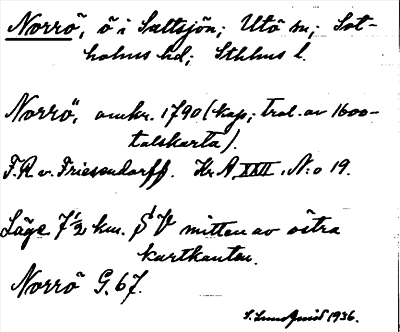 Norrö, ö i Saltsjön; Utö sn; Sot-
holms hd; Sthlms l.
Norrö, omkr. 1790 (kop; trol. av 1600-
talskarta).
F.A v. Friesendorff. Kr.A XXII, N:o 19.
Läge 7½ km. SV mitten av östra
kartkanten.
Norrö G.67.
S. Lundqvist 1936.